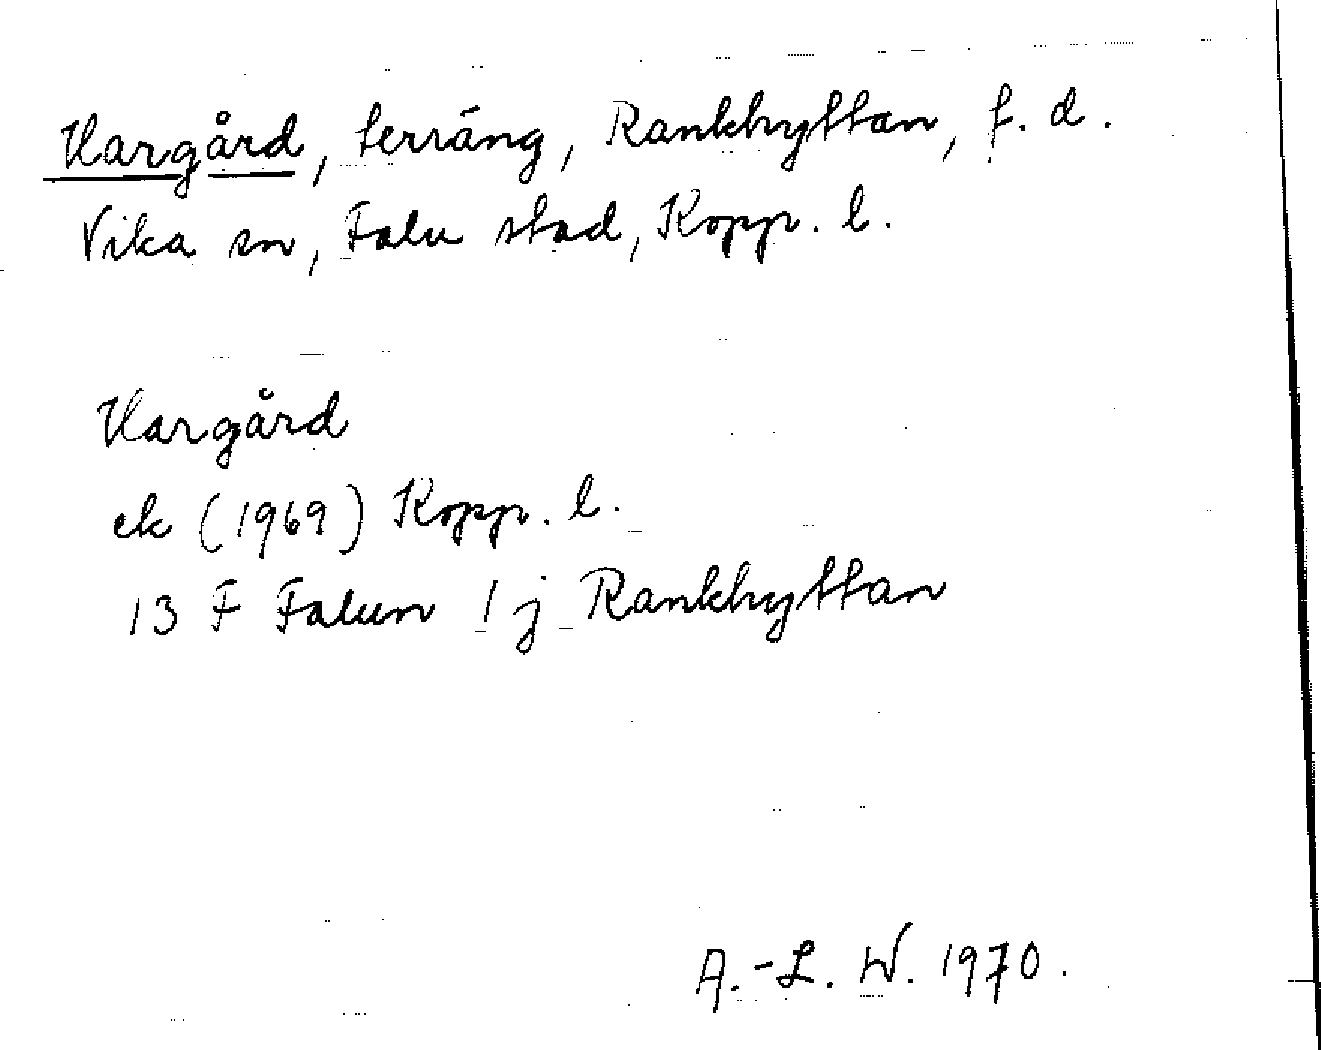 Hargård, terräng, Rankhyttan, f. d.
Vika sn, Falu stad, Kopp. l.
Hargård
ek (1969) Kopp. l.
13 F Falun 1 j Rankhyttan
A.-L. W. 1970.